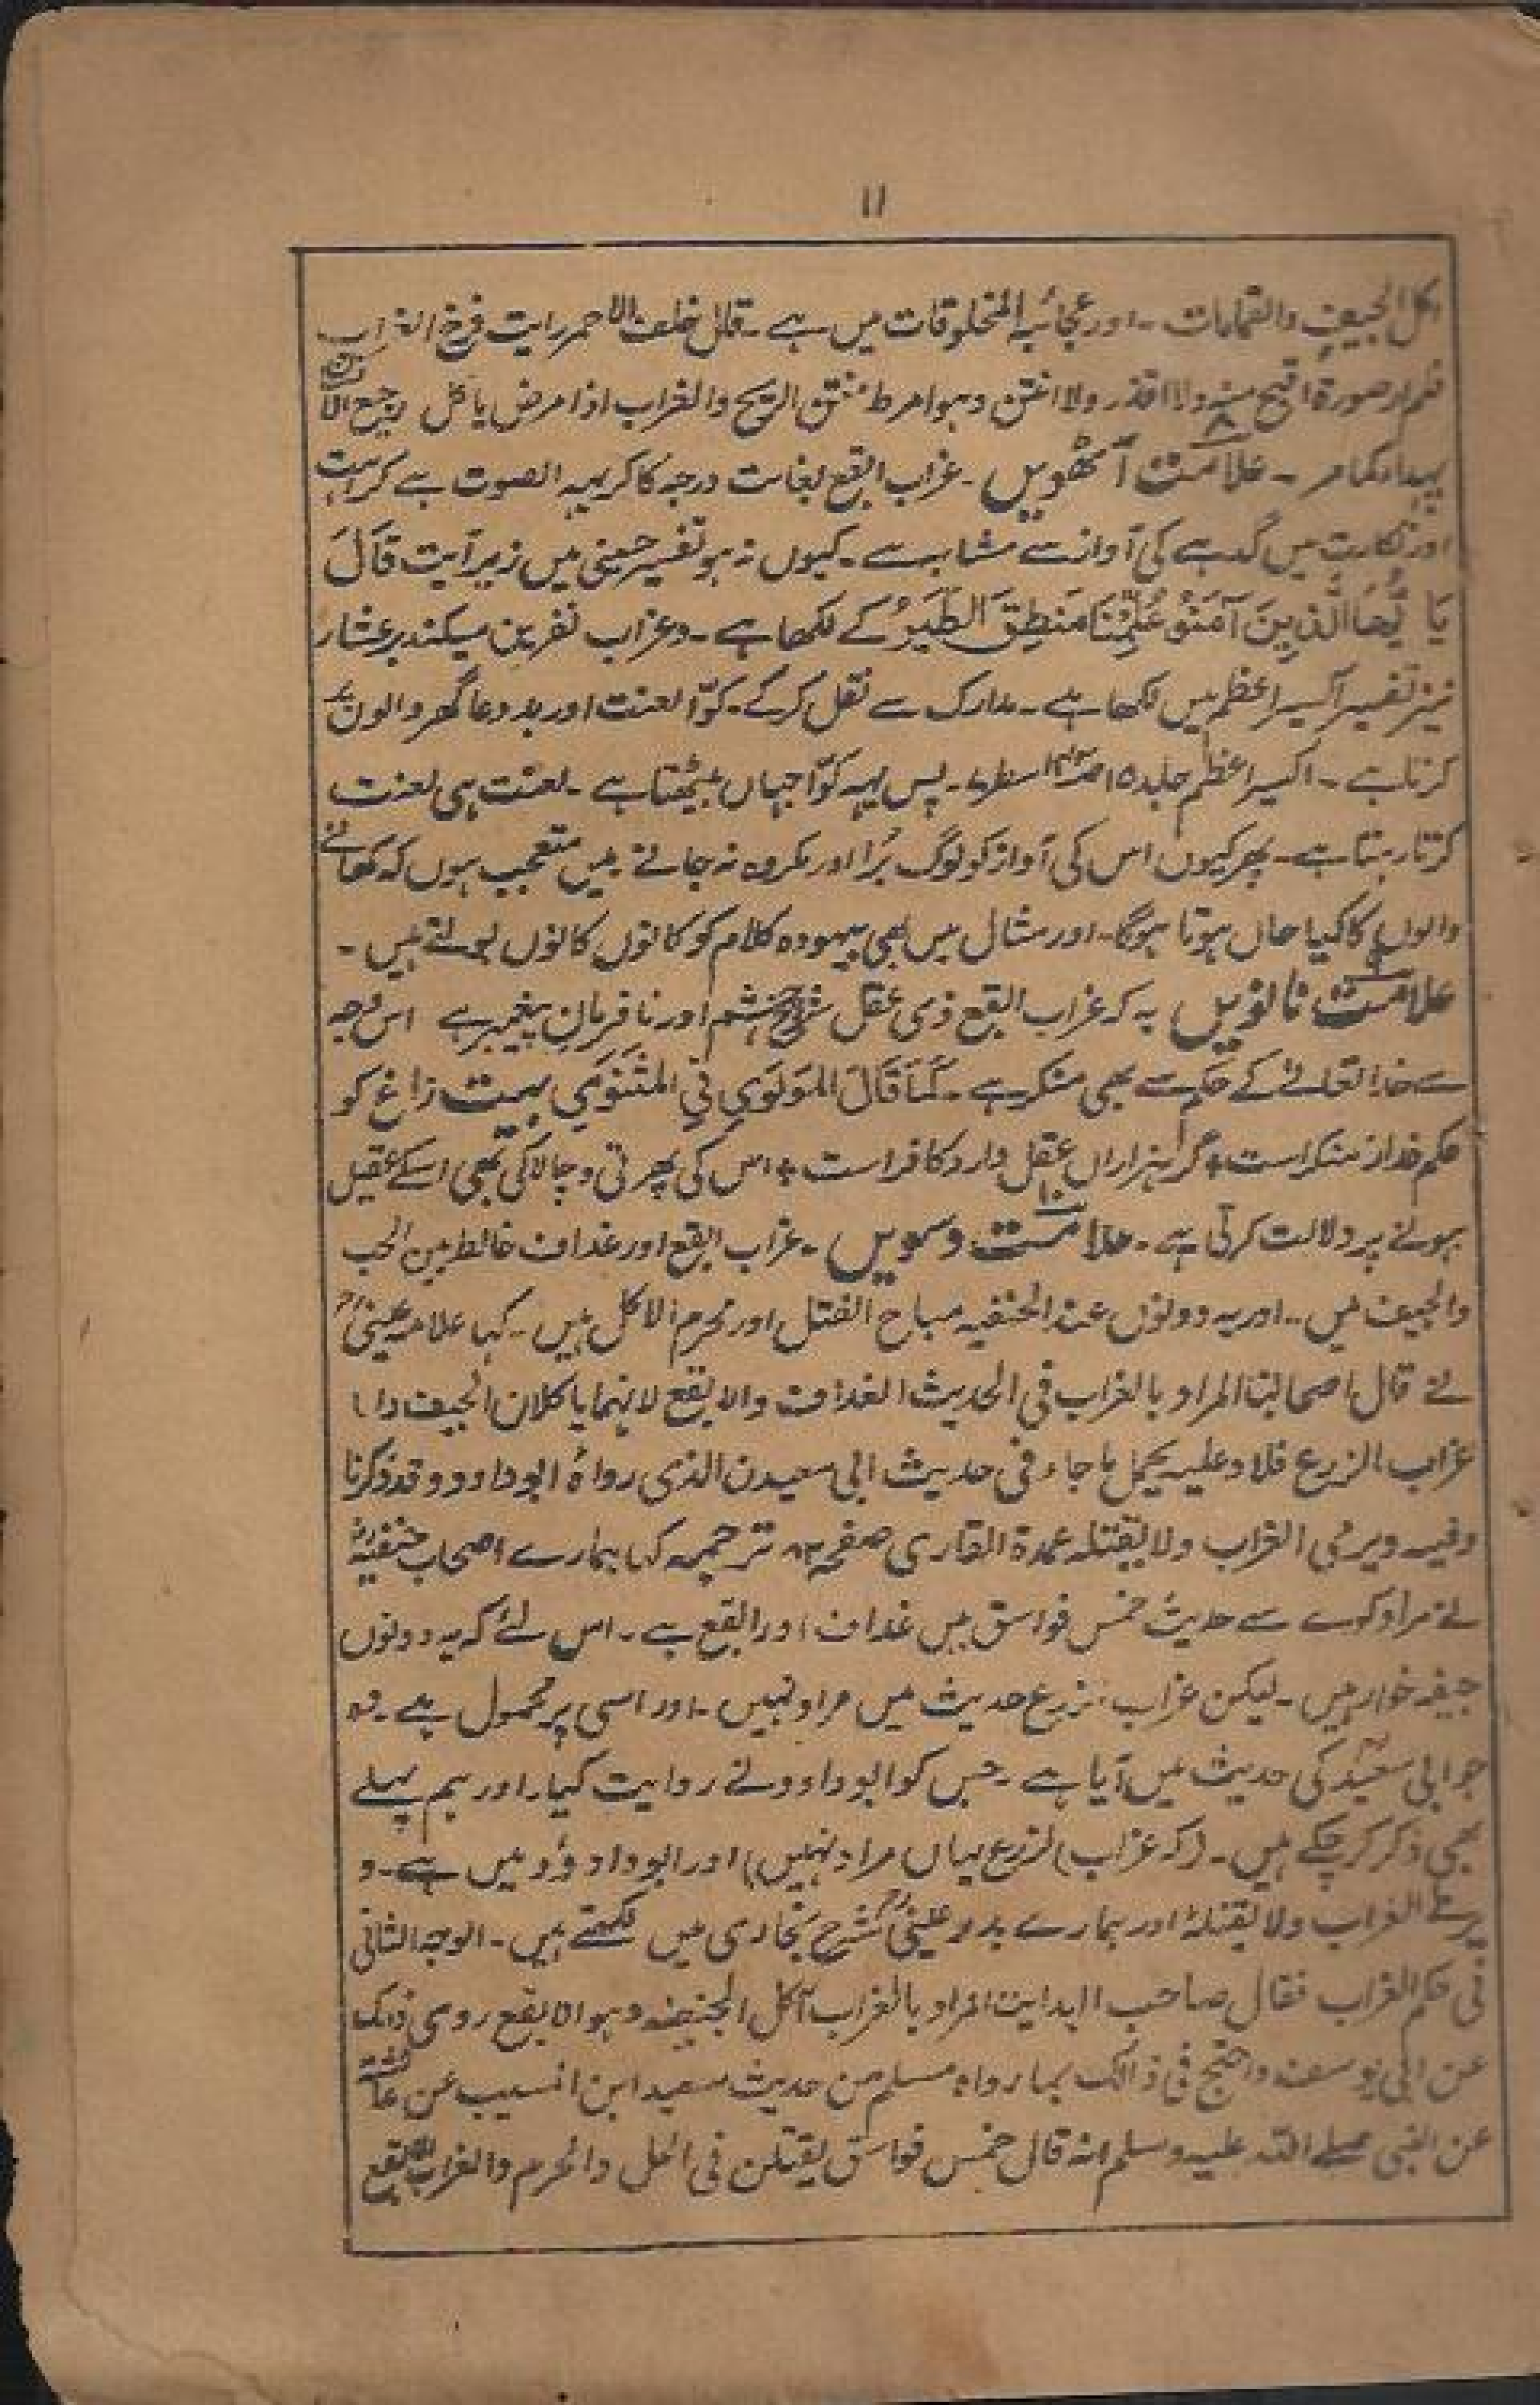 ۱۱
اکل الجیف والقمامات ۔ اور عجائب المخلوقات میں ہے ۔ قال خلف الاحمر رایت فرخ الغراب
فلم ار صورة اقبح منہ ولا اقذر ولا انتن وہو امرط منتن الریح والغراب اذا مرض یاکل رجیع الانسان
علامت آٹھویں ۔ غراب ابقع بغایت درجہ کا کریہہ الصوت ہے کراہت
اور نکارت میں گدہے کی آواز سے مشابہ ہے ۔ کیوں نہ ہو تفسیر حسینی میں زیر آیت قَالَ
یَا یُّھَا الَّذِینَ آمَنُوْ عُلِّمْنَا مَنطِقَ الطَّیْرُ کے لکھا ہے ۔ وغراب نفرین میکند بر عشار
نیز تفسیر اکسیر اعظم میں لکھا ہے ۔ مدارک سے نقل کر کے ۔ کوّا لعنت اور بد دعا گھر والوں پر
کرتا ہے ۔ اکسیر اعظم جلد ۱۵ ۔ پس یہہ کوّا جہاں بیٹھتا ہے ۔ لعنت ہی لعنت
کرتا رہتا ہے ۔ پھر کیوں اس کی آواز کو لوگ بُرا اور مکروہ نہ جانے میں متعجب ہوں کہ کھانے
والوں کا کیا حال ہوتا ہوگا ۔ اور مثال میں بھی بیہودہ کلام کو کانوں کانوں بولتے ہیں ۔
علامت نانویں یہ کہ غراب ابقع ذی عقل شوخ چشم اور نافرمان پیغمبر ہے اس وجہ
سے خدا تعالےٰ کے حکم سے بھی منکر ہے ۔ کَمَا قَالَ المَولَوِی فِی المَثنَوِی بیت زاغ کو
حکم خدا را منکر است ٭ گر ہزاراں عقل دارد کافر است ٭ اس کی پھرتی و چالاکی بھی اسکے عقیل
ہونے پر دلالت کرتی ہے ۔ علامت دسویں ۔ غراب ابقع اور غداف خالط بین الحب
والجیف ہیں ۔ اور یہ دونوں عند الحنفیہ مباح القتل اور محرم الاکل ہیں ۔ کہا علامہ عینیؒ
نے قال اصحابنا المراد بالغراب فی الحدیث الغداف والابقع لانہما یاکلان الجیف واما
غراب الزرع فلا وعلیہ یحمل ما جاء فی حدیث ابی سعیدن الذی رواہ ابوداود وقد ذکرنا
وفیہ ویرمی الغراب ولا یقتلہ عمدۃ القاری صفحہ ۸۲ ترجمہ کہا ہمارے اصحاب حنفیہ
نے مراد کوے سے حدیث خمس فواسق میں غداف اور ابقع ہے ۔ اس لئے کہ یہ دونوں
جیفہ خوار ہیں ۔ لیکن غراب الزرع حدیث میں مراد نہیں ۔ اور اسی پر محمول ہے ۔ وہ
جو ابی سعیدؓ کی حدیث میں آیا ہے ۔ جس کو ابوداود نے روایت کیا ۔ اور ہم پہلے
بھی ذکر کر چکے ہیں ۔ (کہ غراب الزرع یہاں مراد نہیں) اور ابوداوود میں ہے ۔ و
یرمے الغراب ولا یقتلہ اور ہمارے بدر عینیؒ شرح بخاری میں لکھتے ہیں ۔ الوجہ الثانی
فی حکم الغراب فقال صاحب الہدایہ المراد بالغراب آکل الجیفہ وہو الابقع روی ذلک
عن ابی یوسف واحتج فی ذالک بما رواہ مسلم من حدیث سعید ابن المسیب عن عائشۃ
عن النبی صلے اللہ علیہ وسلم انہ قال خمس فواسق یقتلن فی الحل والحرم والغراب الابقع